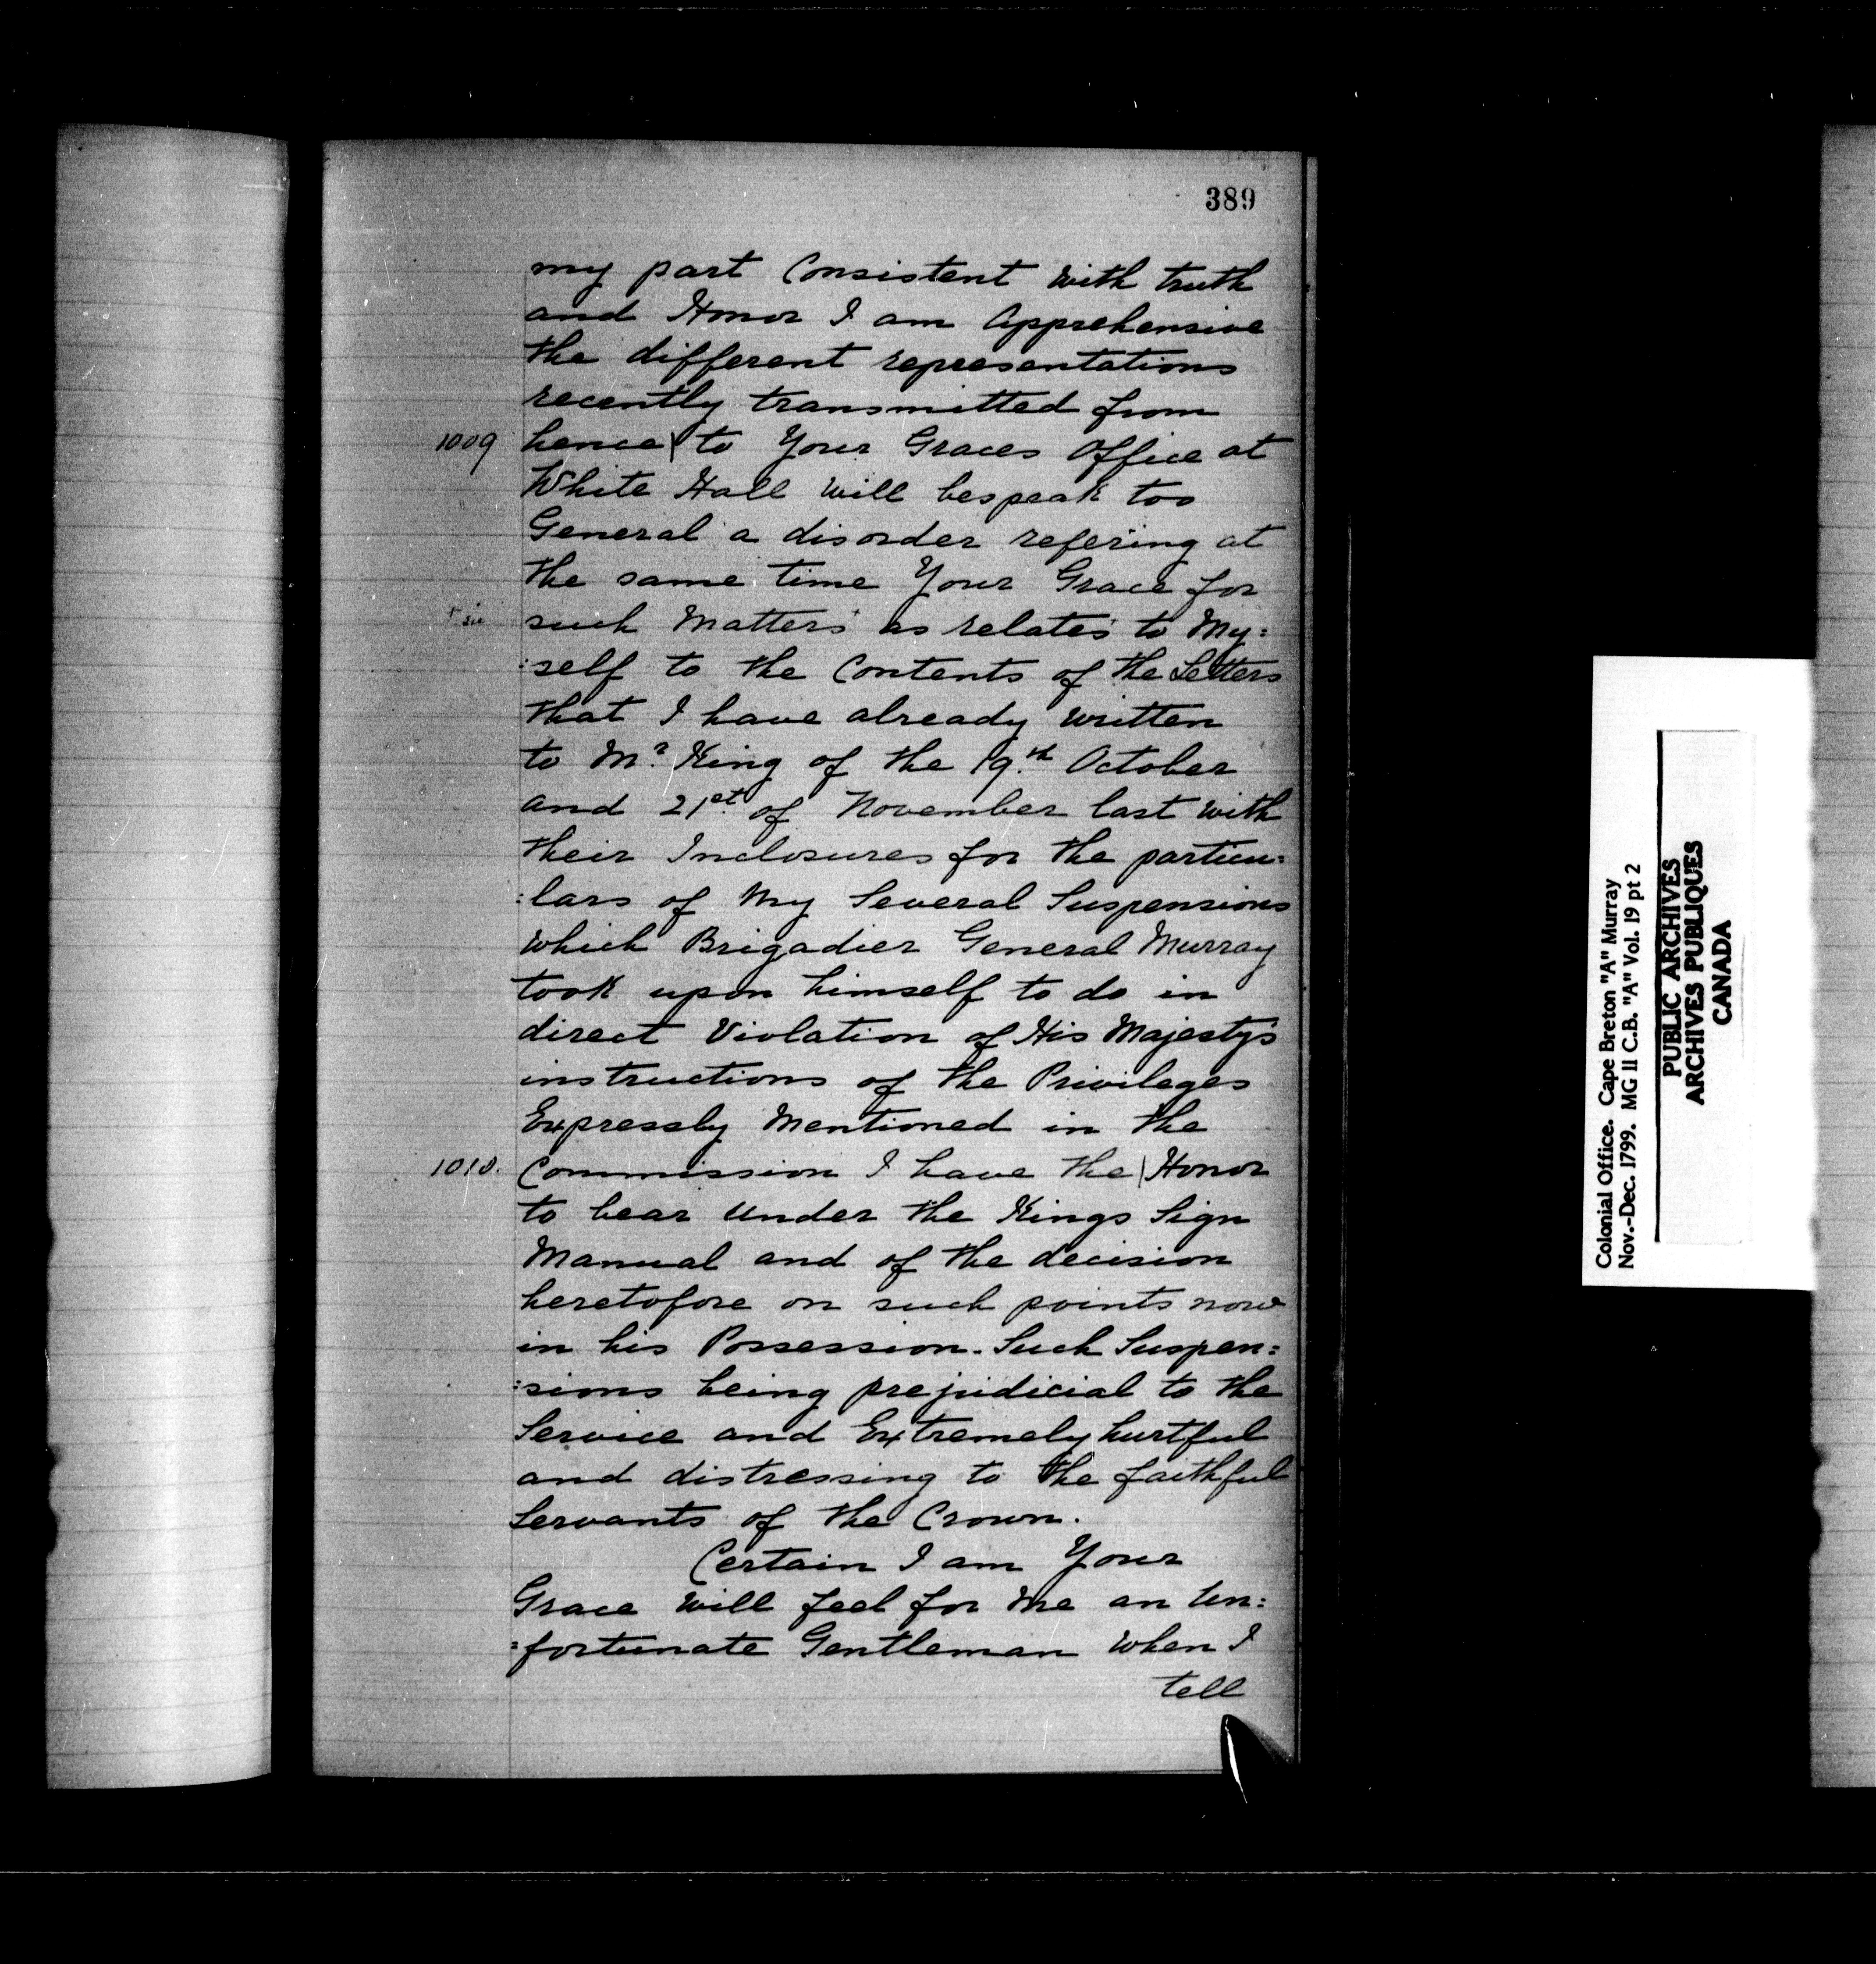 389
my part Consistent with truth
and Honor I am Apprehensive
the different representations
recently transmitted from
1009 hence | to Your Graces Office at
White Hall will bespeak too
General a disorder refering at
the same time Your Grace for
+ sic such Matters + as relates to My:
:self to the Contents of the Letters
that I have already written
to Mr. King of the 19.th October
and 21st of November last with
their Inclosures for the particu:
:lars of My Several Suspensions
which Brigadier General Murray
took upon himself to do in
direct Violation of His Majestys
instructions of the Privileges
Expressly Mentioned in the
1010. Commission I have the | Honor
to bear under the Kings Sign
Manual and of the decision
heretofore on such points now
in his Possession. Such Suspen:
:sions being prejudicial to the
Service and Extremely hurtful
and distressing to the faithful
Servants of the Crown.
Certain I am Your
Grace will feel for Me an Un:
:fortunate Gentleman when I
tell
Colonial Office. Cape Breton "A" Murray
Nov.-Dec. 1799. MG 11 C.B. "A" Vol. 19 pt 2
PUBLIC ARCHIVES
ARCHIVES PUBLIQUES
CANADA